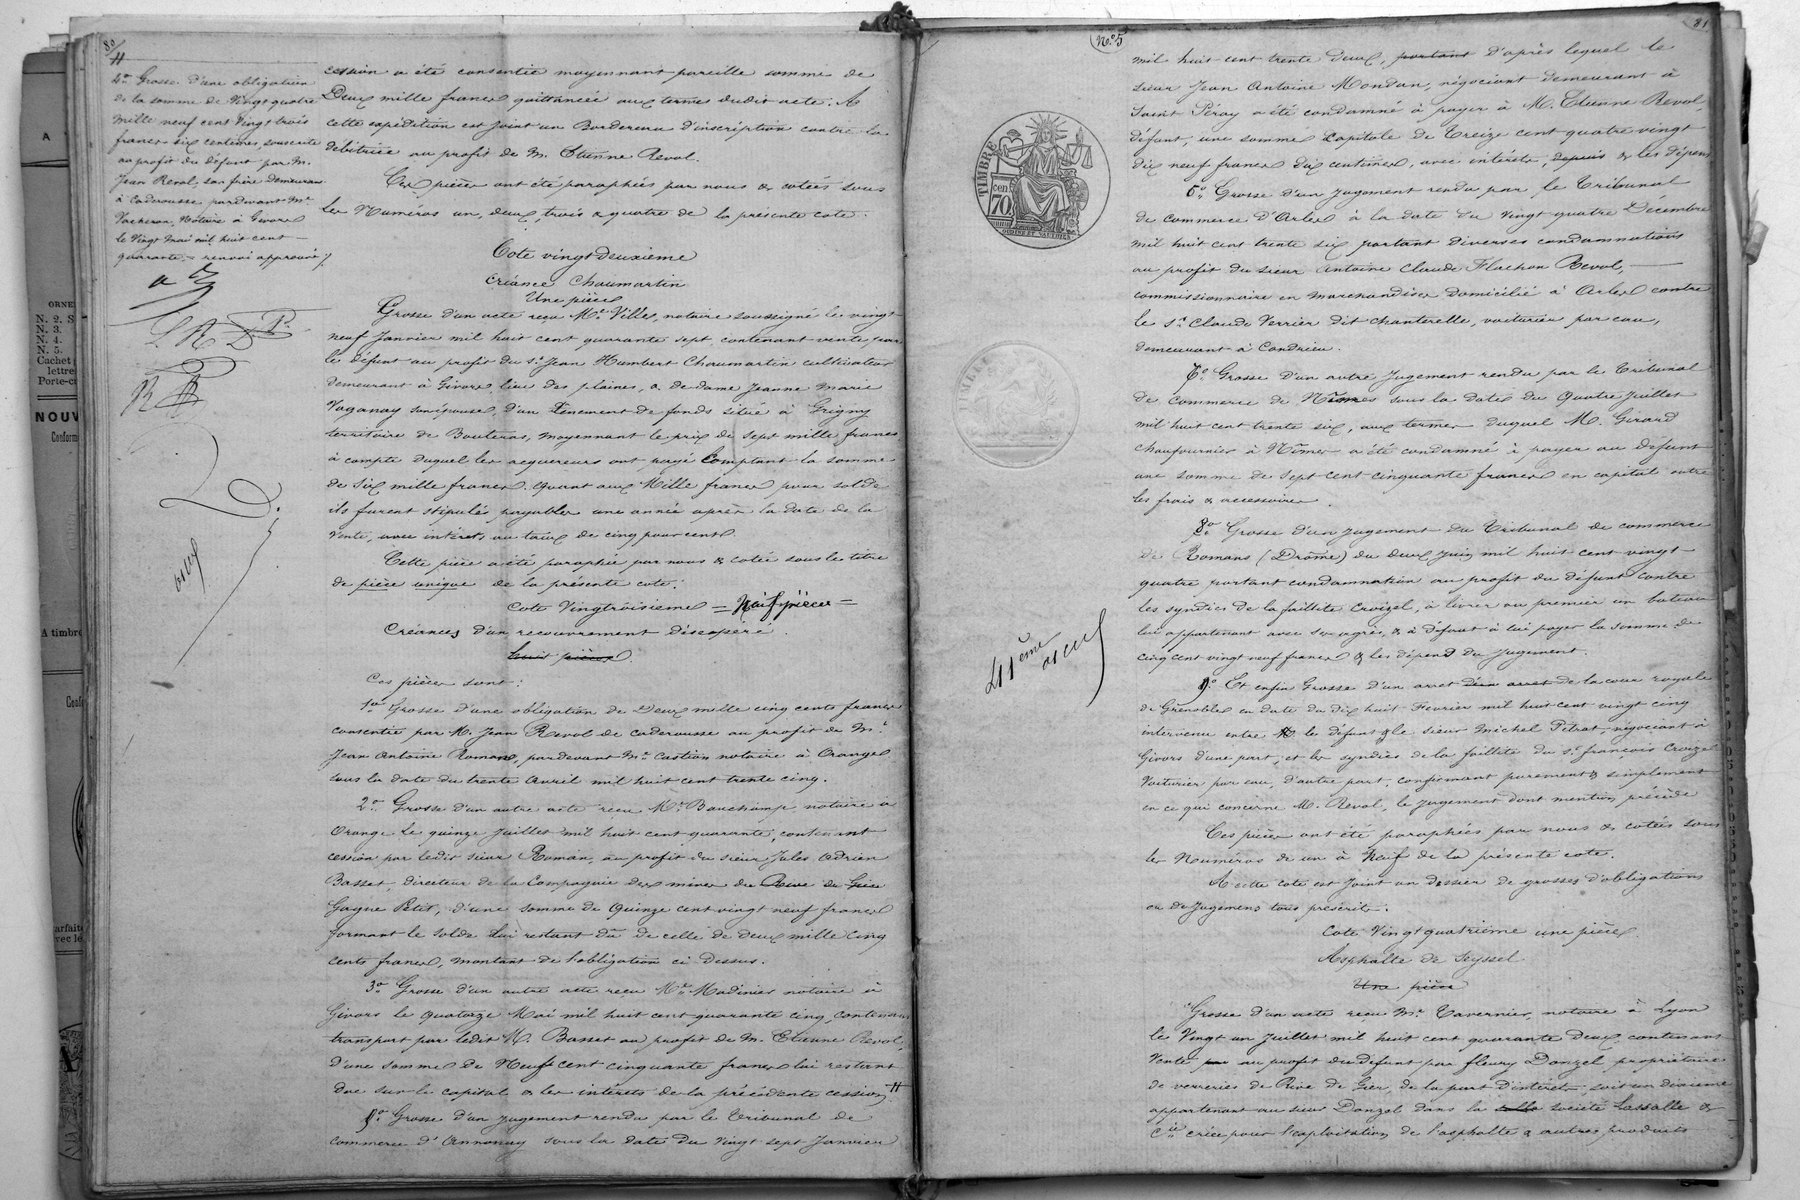 80
H
4º Grosse d'une obligation
de la somme de Vingt quatre
mille neuf cent Vingt trois
francs six centimes, souscrite
au profit du défunt par M.
Jean Revol, son frère demeurant
à Caderousse pardevant Me
Vacheron, Notaire à Givors
le Vingt Mai mil huit cent
quarante = renvoi approuvé
cession a été consentie moyennant pareille somme de
Deux mille francs quittancée aux termes dudit acte. A
cette expédition est joint un Bordereau d'inscription contre la
débitrice au profit de M. Etienne Revol.
Ces pièces ont été paraphées par nous & cotées sous
les Numéros un, deux, trois & quatre de la présente cote.
Cote vingt deuxième
Créance Chaumartin
Une pièce
Grosse d'un acte reçu Me Villes, notaire soussigné le vingt
neuf Janvier mil huit cent quarante sept, contenant vente par
le défunt au profit du Sr Jean Humbert Chaumartin cultivateur
demeurant à Givors lieu des plaines, & de dame Jeanne Marie
Vaganay son épouse, d'un Tènement de fonds situé à Grigny
territoire de Bouteras, moyennant le prix de Sept mille francs
à compte duquel les acquéreurs ont payé Comptant la somme
de six mille francs. Quant aux Mille francs pour solde
ils furent stipulés payables une année après la date de la
Vente, avec intérêts au taux de cinq pour cent.
Cette pièce a été paraphée par nous & cotée sous le titre
de pièce unique de la présente cote.
Cote Vingt troisième = Neuf pièces =
Créances d'un recouvrement désespéré.
huit pièces.
Ces pièces sont :
1º Grosse d'une obligation de Deux mille cinq cents francs
consentie par M. Jean Revol de Caderousse au profit de M.
Jean Antoine Roman, pardevant Me Castion notaire à Orange
sous la date du trente Avril mil huit cent trente cinq.
2º Grosse d'un autre acte reçu Me Bauchamp notaire à
Orange le quinze Juillet mil huit cent quarante, contenant
cession par ledit sieur Roman, au profit du sieur Jules Adrien
Basset, directeur de la Compagnie des mines de Rive de Gier
Gagne Petit, d'une somme de Quinze cent vingt neuf francs
formant le solde lui restant dû de celle de deux mille cinq
cents francs, montant de l'obligation ci dessus.
3º Grosse d'un autre acte reçu Me Madinier notaire à
Givors le quatorze Mai mil huit cent quarante cinq, contenant
transport par ledit M. Basset au profit de M. Etienne Revol,
d'une somme de Neuf cent cinquante francs lui restant
due sur le capital & les intérêts de la précédente cession. H
5º Grosse d'un jugement rendu par le Tribunal de
commerce d'Annonay sous la date du Vingt sept Janvier
Nº 5
81
TIMBRE
cen
70
mil huit cent trente deux, portant d'après lequel le
sieur Jean Antoine Mondan, négociant demeurant à
Saint Péray a été condamné à payer à M. Etienne Revol,
défunt, une somme Capitale de Treize cent quatre vingt
dix neuf francs dix centimes, avec intérêts, depuis & les dépens
6º Grosse d'un jugement rendu par le Tribunal
de commerce d'Arles à la date du Vingt quatre Décembre
mil huit cent trente six portant diverses condamnations
au profit du sieur Antoine Claude Flachon Revol,
commissionnaire en marchandises domicilié à Arles contre
le Sr Claude Verrier dit Chanterelle, voiturier par eau,
demeurant à Condrieu.
7º Grosse d'un autre Jugement rendu par le Tribunal
de commerce de Nîmes sous la date du Quatre Juillet
mil huit cent trente six, aux termes duquel M. Girard
Chaufournier à Nîmes a été condamné à payer au défunt
une somme de Sept cent cinquante francs en capital outre
les frais & accessoires.
8º Grosse d'un jugement du Tribunal de commerce
de Romans (Drôme) du deux juin mil huit cent vingt
quatre portant condamnation au profit du défunt contre
les syndics de la faillite Croizel, à livrer au premier un bateau
lui appartenant avec ses agrès, & à défaut à lui payer la somme de
cinq cent vingt neuf francs & les dépens du Jugement.
9º Et enfin Grosse d'un arrêt d'un arrêt de la cour royale
de Grenoble en date du dix huit Février mil huit cent vingt cinq
intervenu entre M le défunt & le sieur Michel Pétrat, négociant à
Givors d'une part, et les syndics de la faillite du Sr françois Croizel
Voiturier par eau, d'autre part, confirmant purement & simplement
en ce qui concerne M. Revol, le jugement dont mention précède
Ces pièces ont été paraphées par nous & cotées sous
les Numéros de un à Neuf de la présente cote.
A cette cote est joint un dossier de grosses d'obligations
ou de jugemens tous préscrits.
Cote Vingt quatrième une pièce
Asphalte de Seyssel
Une pièce
Grosse d'un acte reçu Me Tavernier, notaire à Lyon
le Vingt un Juillet mil huit cent quarante Deux, contenant
Vente par au profit du défunt par fleury Donzel propriétaire
de verreries de Rive de Gier, de la part d'intérêt, soit un dixième
appartenant au sieur Donzel dans la société Lassalle &
Cie créée pour l'exploitation de l'asphalte & autres produits